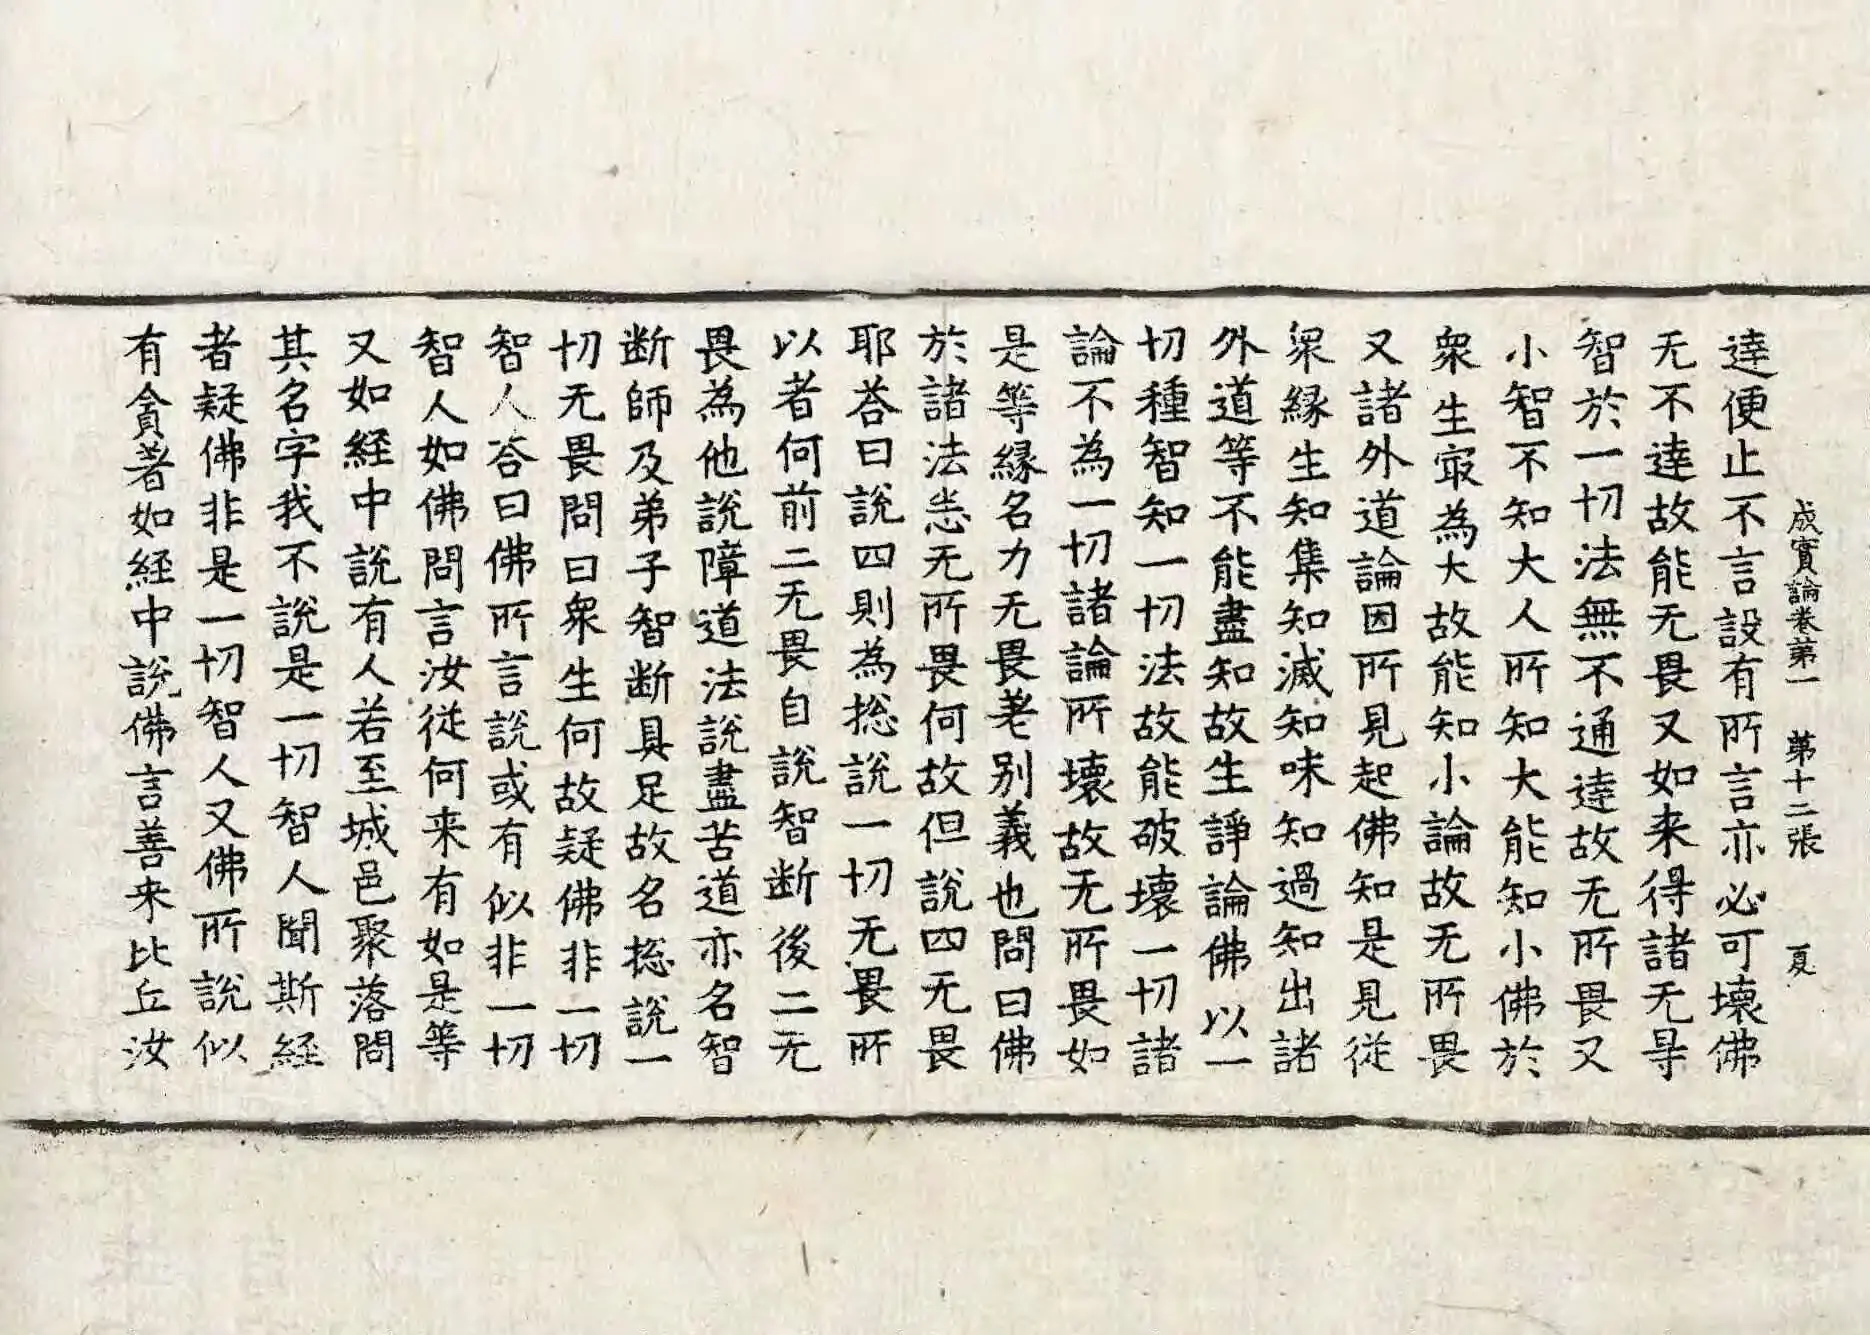 成實論卷第一　第十二張　夏
達便止不言設有所言亦必可壞佛
无不達故能无畏又如来得諸无㝵
智於一切法無不通達故无所畏又
小智不知大人所知大能知小佛於
衆生㝡為大故能知小論故无所畏
又諸外道論因所見起佛知是見從
衆縁生知集知滅知味知過知出諸
外道等不能盡知故生諍論佛以一
切種智知一切法故能破壞一切諸
論不為一切諸論所壞故无所畏如
是等縁名力无畏差別義也問曰佛
於諸法悉无所畏何故但說四无畏
耶荅曰說四則為捴說一切无畏所
以者何前二无畏自說智断後二无
畏為他說障道法說盡苦道亦名智
断師及弟子智断具足故名捴說一
切无畏問曰衆生何故疑佛非一切
智人荅曰佛所言說或有似非一切
智人如佛問言汝從何来有如是等
又如経中說有人若至城邑聚落問
其名字我不說是一切智人聞斯経
者疑佛非是一切智人又佛所說似
有貪著如経中說佛言善来比丘汝